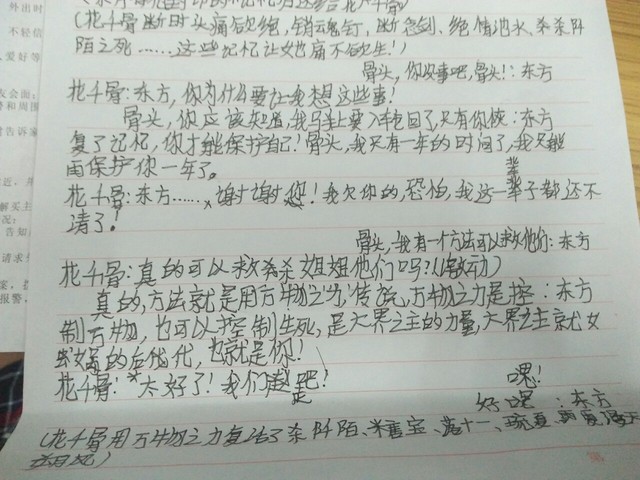 (花千骨断时头痛欲绝,销魂钉,断念剑、绝情池水、杀阡
陌之死……这些记忆让她痛不欲生!)
骨头,你没事吧,骨头!:东方
花千骨:东方,你为什么要让我想这些事!
骨头,你应该知道,我马上要入轮回了,只有你恢:东方
复了记忆,你才能保护自己!骨头,我只有一年的时间了,我只能
再保护你一年了。
花千骨:东方……谢谢您!我欠你的,恐怕,我这一辈子都还不
清了!
骨头,我有一个方法可以救他们:东方
花千骨:真的可以救杀杀姐姐他们吗?(激动)
真的,方法就是用万物之力,传说,万物之力是控:东方
制万物,也可以控制生死,是六界之主的力量,六界之主就女
女娲的后代,也就是你!
花千骨:太好了!我们走吧!
嘿!
好嘿:东方
(花千骨用万物之力复活了杀阡陌、糖宝、落十一、琉夏
外出时
不轻信
爱好等
友会面;
警和周围
时告诉家
解买主
况;
告知
请求
报警,